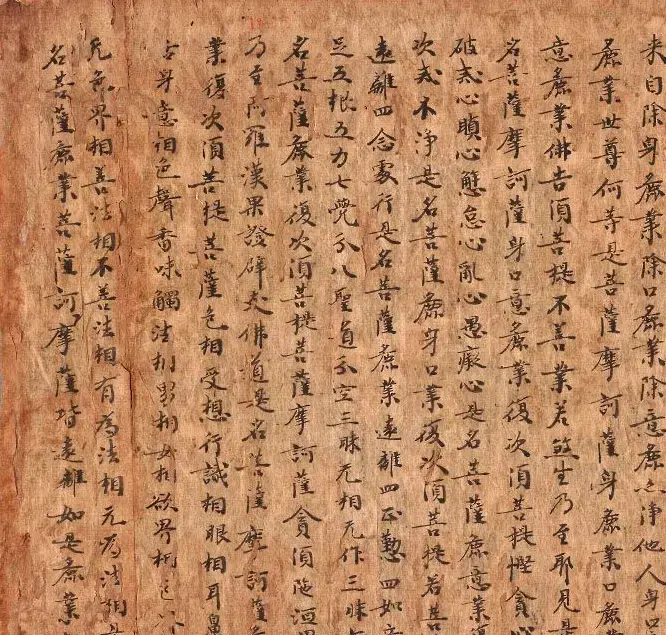 来自除身麁業除口麁業除意麁亦淨他人身口
麁業世尊何等是菩薩摩訶薩身麁業口麁
意麁業佛告須菩提不善業若煞生乃至耶見是
名菩薩摩訶薩身口意麁業復次須菩提慳貪心
破戒心瞋心懈怠心亂心愚癡心是名菩薩麁意業
次戒不淨是名菩薩麁身口業復次須菩提若菩
遠離四念處行是名菩薩麁業遠離四正懃四如意
足五根五力七覺分八聖道分空三昧无相无作三昧
名菩薩麁業復次須菩提菩薩摩訶薩貪須陁洹
乃至阿羅漢果證辟支佛道是名菩薩摩訶薩
業復次須菩提菩薩色相受想行識相眼相耳鼻
舌身意相色聲香味觸法相男相女相欲界相
无色界相善法相不善法相有為法相无為法相是
名菩薩麁業菩薩訶摩薩皆遠離如是麁業